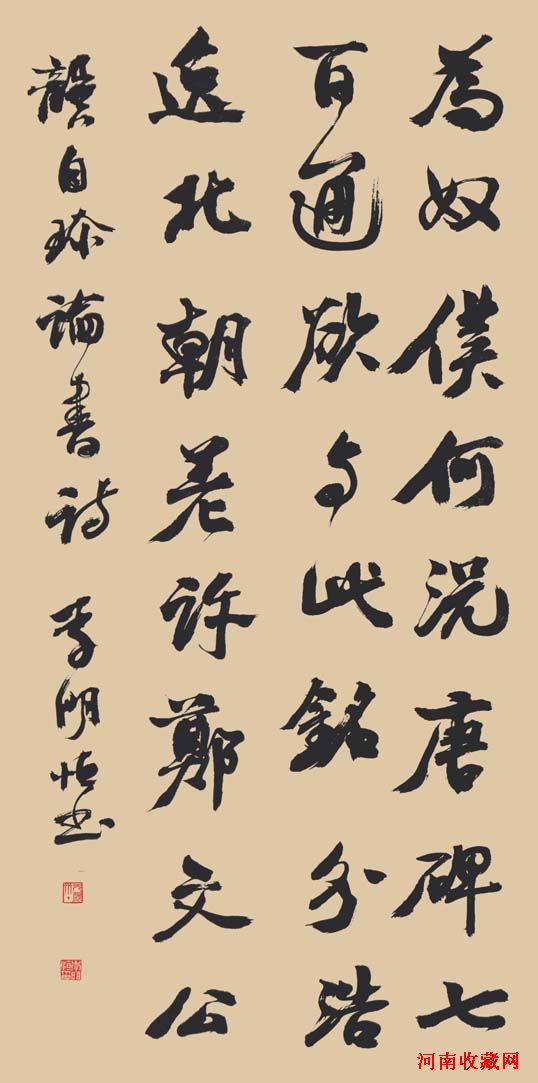 為奴僕何況唐碑七
百通欲与此銘分浩
逸北朝差許鄭文公
龔自珍論書詩 李明书
河南收藏网